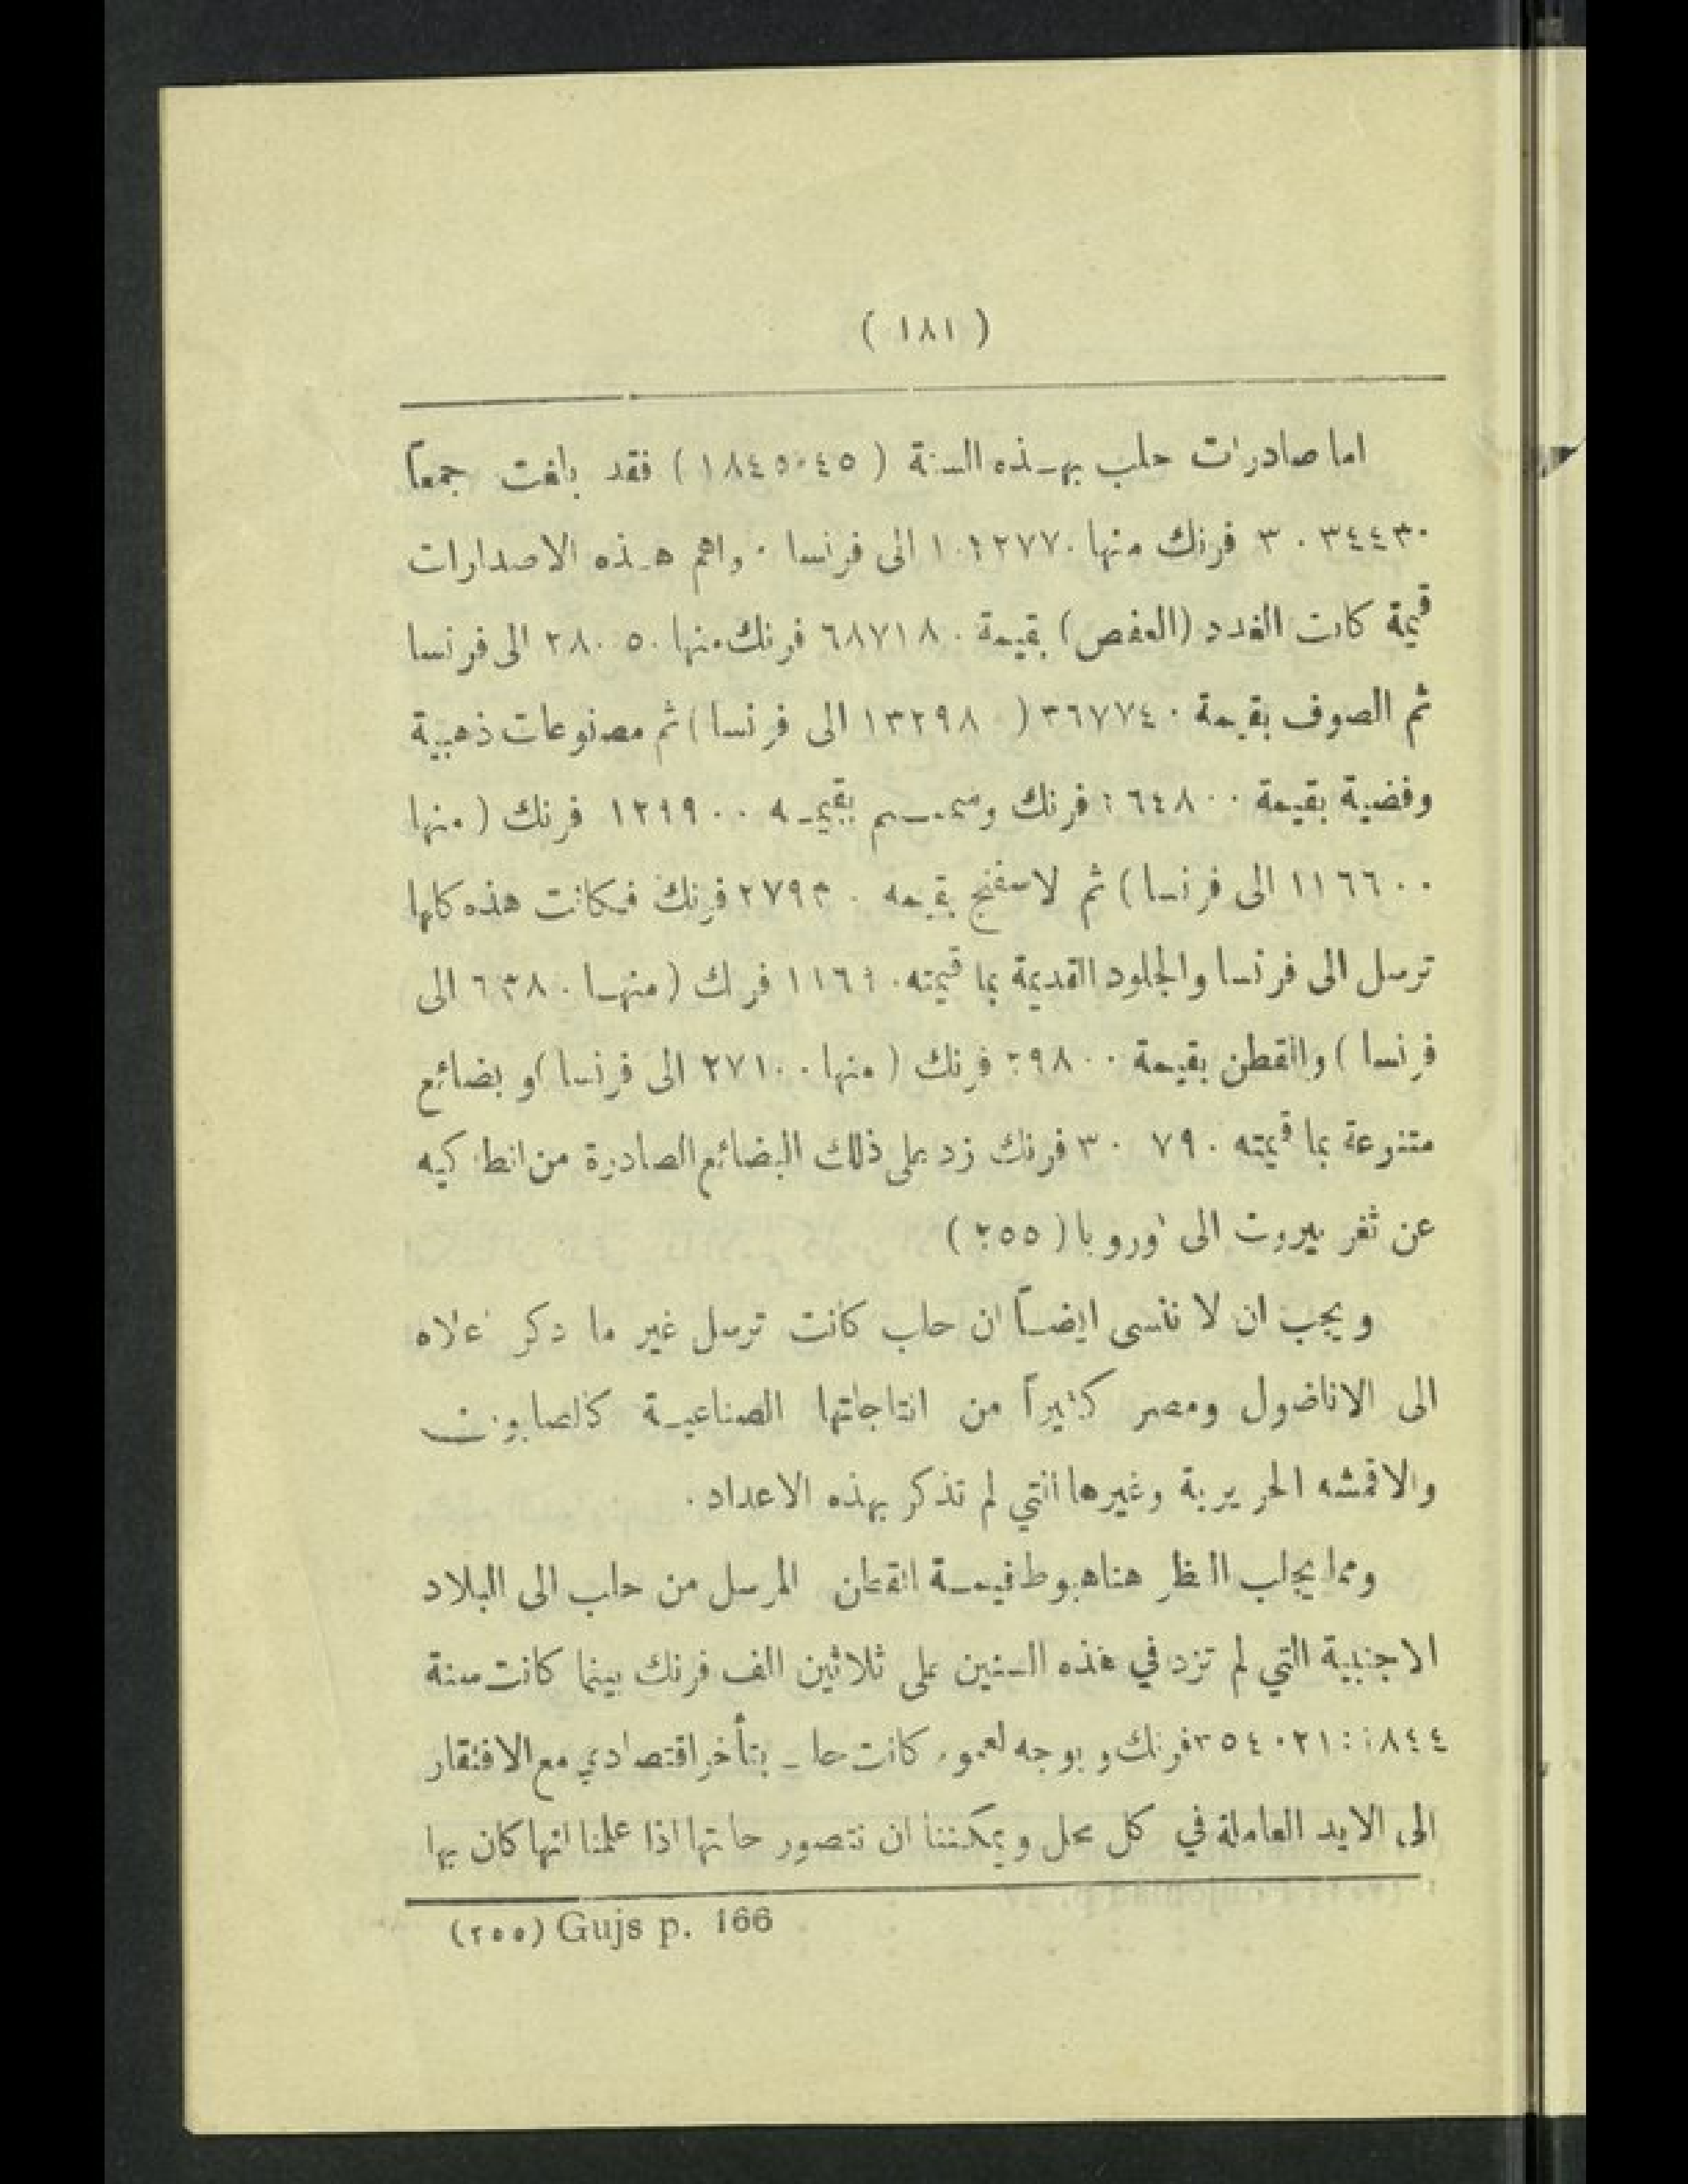 ( ١٨١ )
اما صادرات حلب بهذه السنة ( ١٨٤٥،٤٥ ) فقد بلغت جمعاً
٣٠٣٤٤٣٠ فرنك منها الى فرنسا . واهم هذه الاصدارات
قيمة كانت الغدد (العفص) بقيمة ٦٨٧١٨٠ فرنك منها ٢٨٠٥٠ الى فرنسا
ثم الصوف بقيمة ٣٦٧٧٤٠ ( ١٣٢٩٨ الى فرنسا ) ثم مصنوعات ذهبية
وفضية بقيمة فرنك وسمسم بقيمه ١٢١٩٠٠ فرنك ( منها
١١٦٦٠٠ الى فرنسا ) ثم لاسفنج بقيمه ٢٧٩٣٠ فرنك فكانت هذه كلها
ترسل الى فرنسا والجلود القديمة بما قيمته فرنك ( منهـا ٦٣٨٠ الى
فرنسا ) والقطن بقيمة فرنك ( منها ٢٧١٠٠ الى فرنسا ) و بضائع
متنوعة بما قيمته فرنك زد على ذلك البضائع الصادرة من انطاكيه
عن ثغر بيروت الى اوروبا ( ٢٥٥ )
ويجب ان لا ننسى ايضـاً ان حلب كانت ترسل غير ما ذكر اعلاه
الى الاناضول ومصر كثيراً من انتاجاتها الصناعيـة كالصابون
والاقمشه الحريرية وغيرها التي لم تذكر بهذه الاعداد .
ومما يجلب النظر هنا هبوط قيمـة القطن المرسل من حلب الى البلاد
الاجنبية التي لم تزد في هذه السنين على ثلاثين الف فرنك بينما كانت سنة
١٨٤٤ : ٣٥٤٠٢١ فرنك و بوجه لعموم كانت حلب بتأخر اقتصادي مع الافتقار
الى الايد العاملة في كل محل ويمكننا ان نتصور حالتها اذا علمنا انها كان بها
(٢٥٥) Gujs p. 166